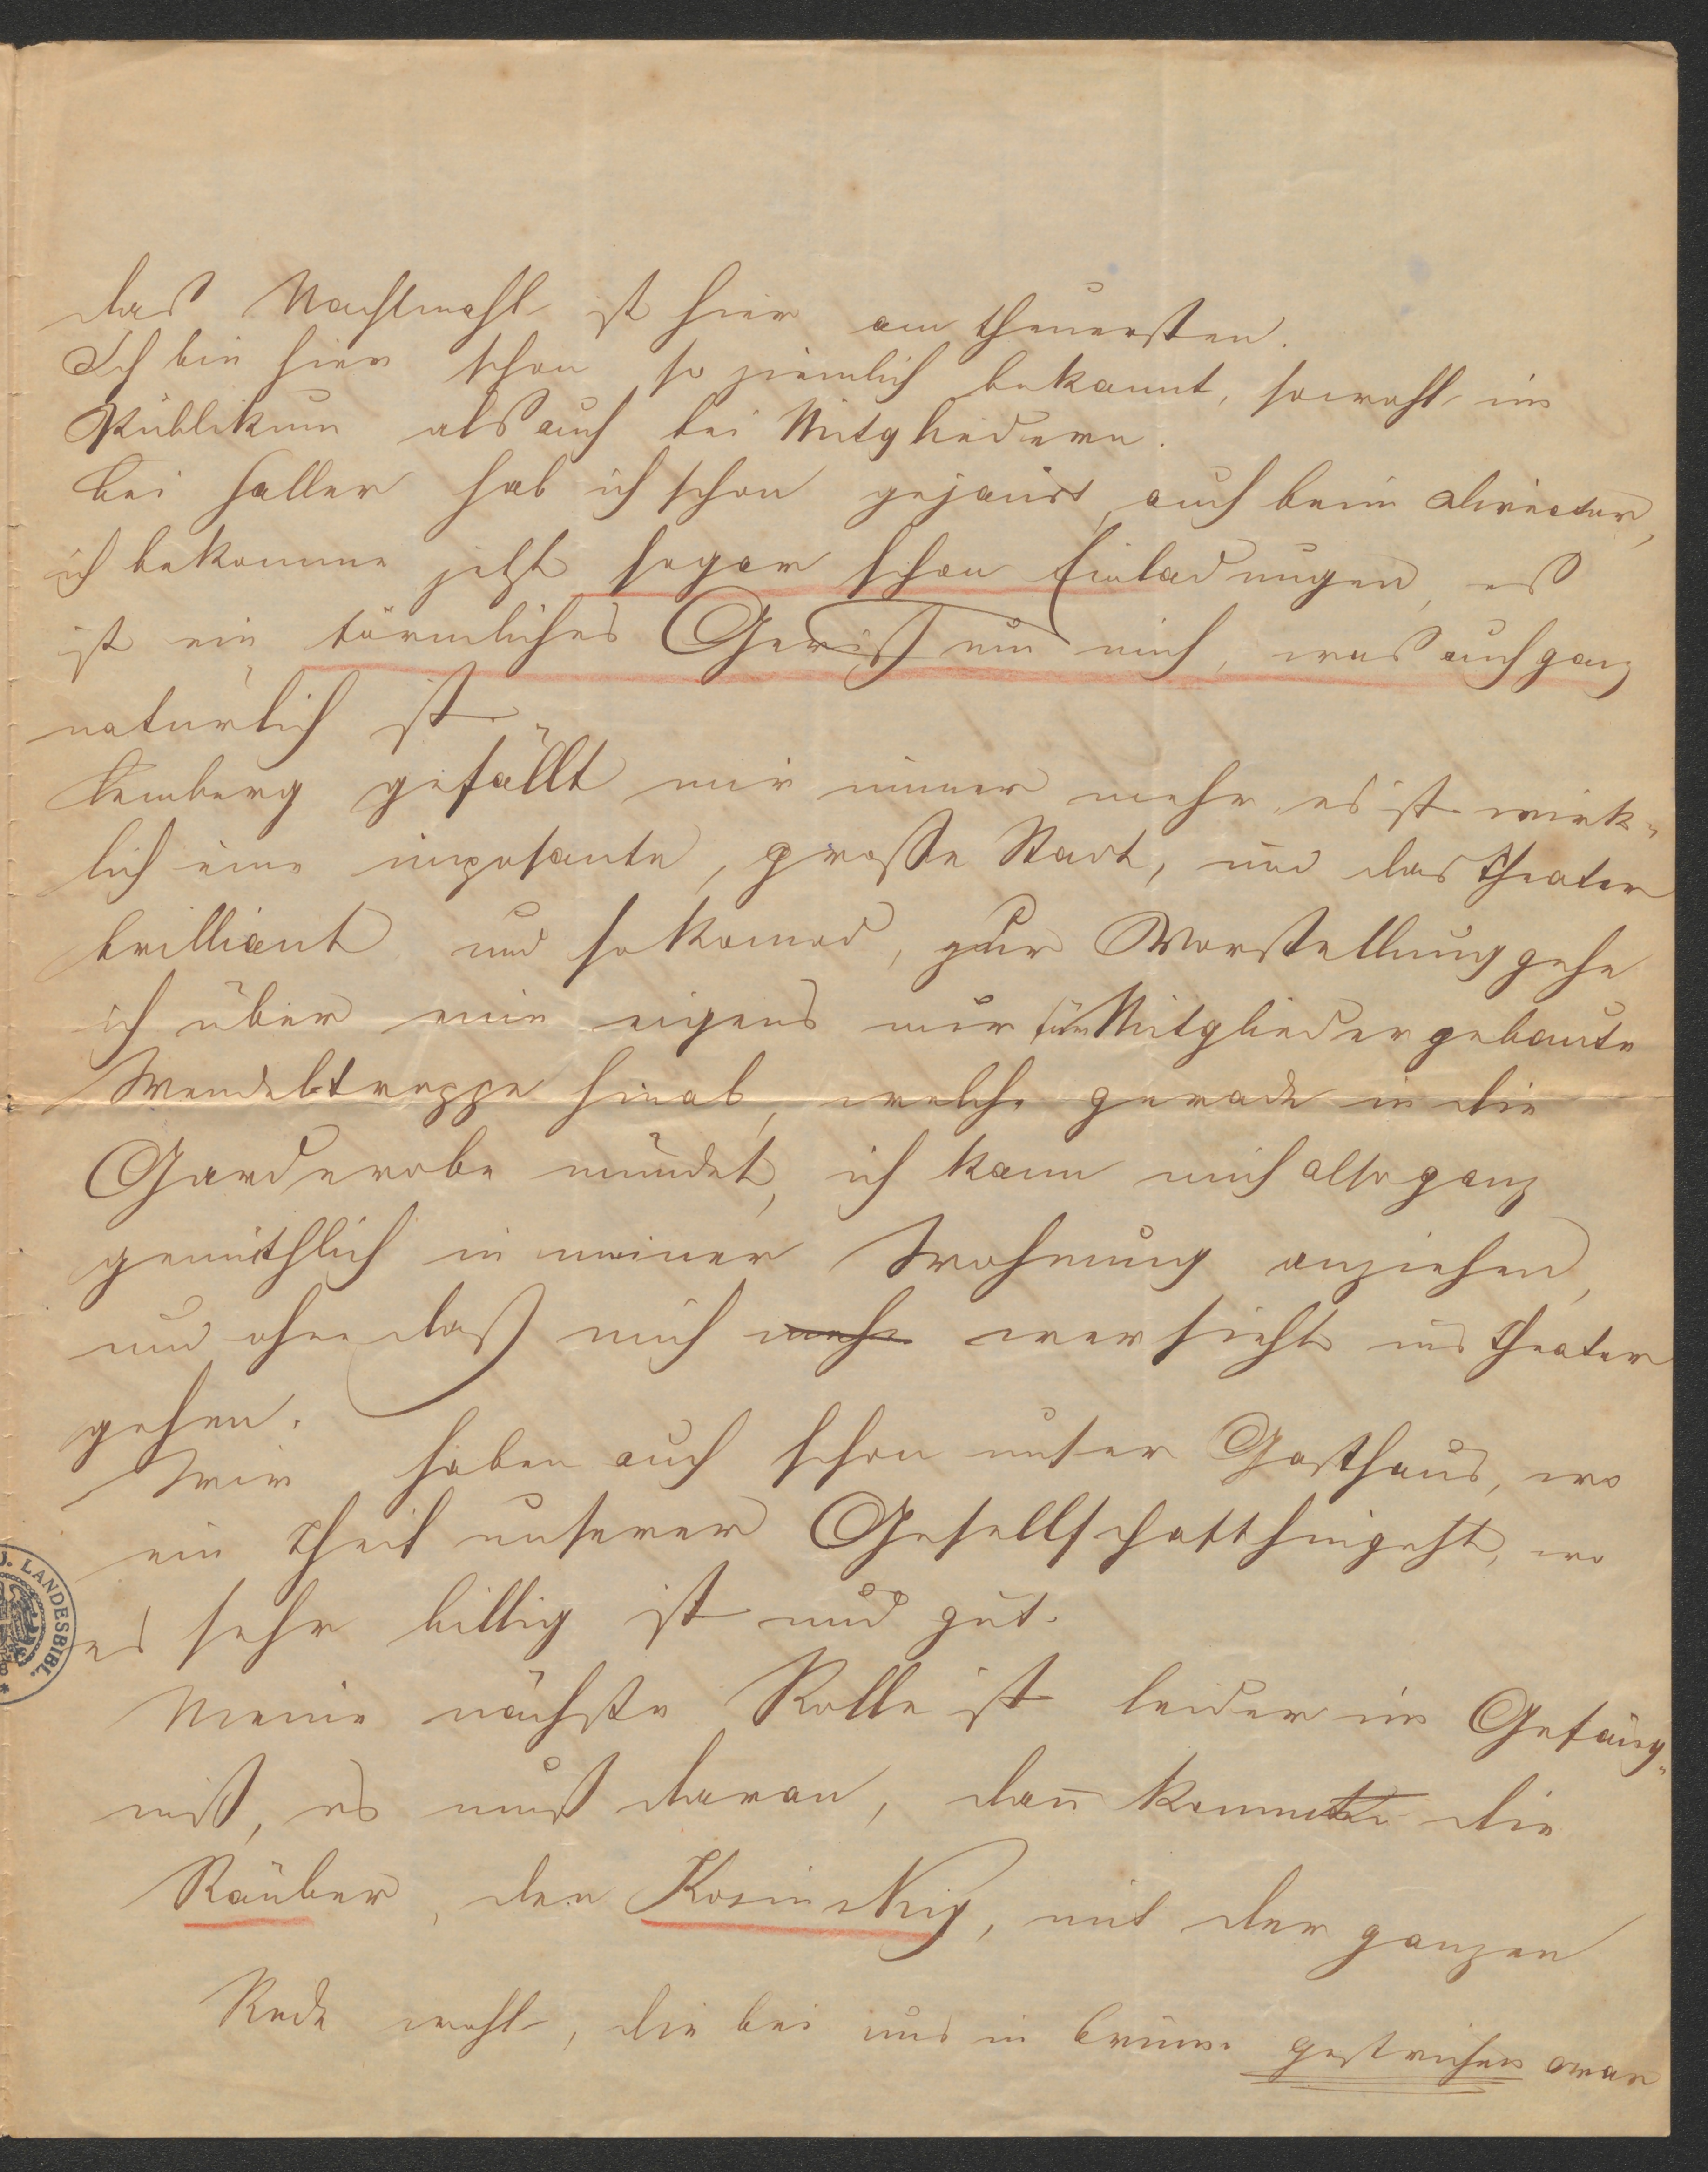 das Nachtmahl ist hier am theuersten.
Ich bin hier schon so ziemlich bekannt, sowohl im
Publikum als auch bei Mitgliedern.
Bei Haller hab ich schon gejaust, auch beim Director,
ich bekomme jetzt sogar schon Einladungen, es
ist ein förmliches Geriß um mich, was auch ganz
natürlich ist.
Lemberg gefällt mir immer mehr, es ist wirk-
lich eine imposante, große Stadt, und das Theater
brilliant und so komod, zur Vorstellung gehe
ich über eine eigens nur für Mitglieder gebaute
Wendeltreppe hinab, welche gerade in die
Garderobe mündet, ich kann mich also ganz
gemüthlich in meiner Wohnung anziehen,
und ohne daß mich wer sieht ins Theater
gehen.
Wir haben auch schon unser Gasthaus, wo
ein Theil unserer Gesellschaft hingeht, wo
es sehr billig ist und gut.
Meine nächste Rolle ist leider im Gefäng-
niß, es muß daran, dann kommen die
Räuber, der Kosinsky, mit der ganzen
Rede wohl, die bei uns in Brünn gestrichen war
J. LANDESBIBL.